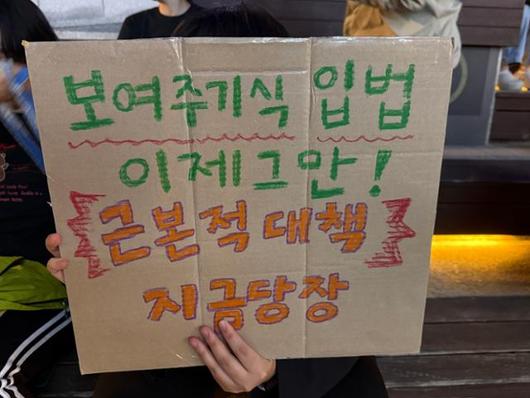 보여주기식 입법
이제그만!
근본적 대책
지금당장